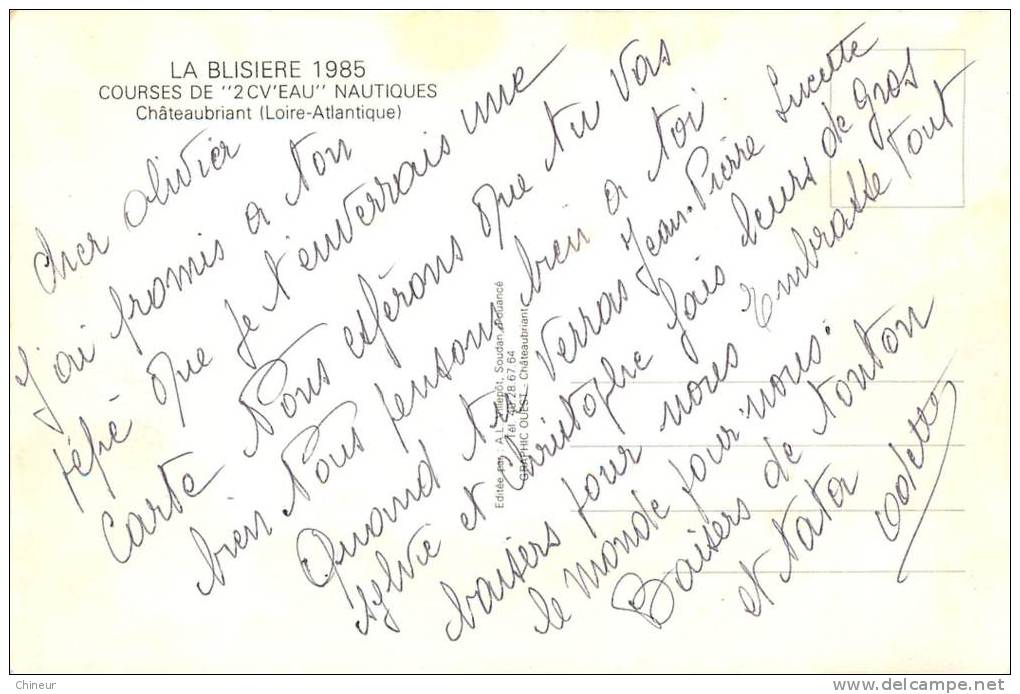 LA BLISIERE 1985
COURSES DE "2CV'EAU" NAUTIQUES
Châteaubriant (Loire-Atlantique)
Cher Olivier
J'ai promis a ton
pépé que je t'enverrais une
carte Nous espérons que tu vas
bien Nous pensons bien a toi.
Quand tu verras Jean-Pierre Lucette
Sylvie et Christophe fais leurs de gros
baisers pour nous Embrasse tout
le monde pour nous.
Baisers de tonton
et tata
Odette
Editée par : A.L. Villepôt, Soudan, Pouancé
Tél. 40.28.67.64
GRAPHIC OUEST - Châteaubriant
Chineur
www.delcampe.net